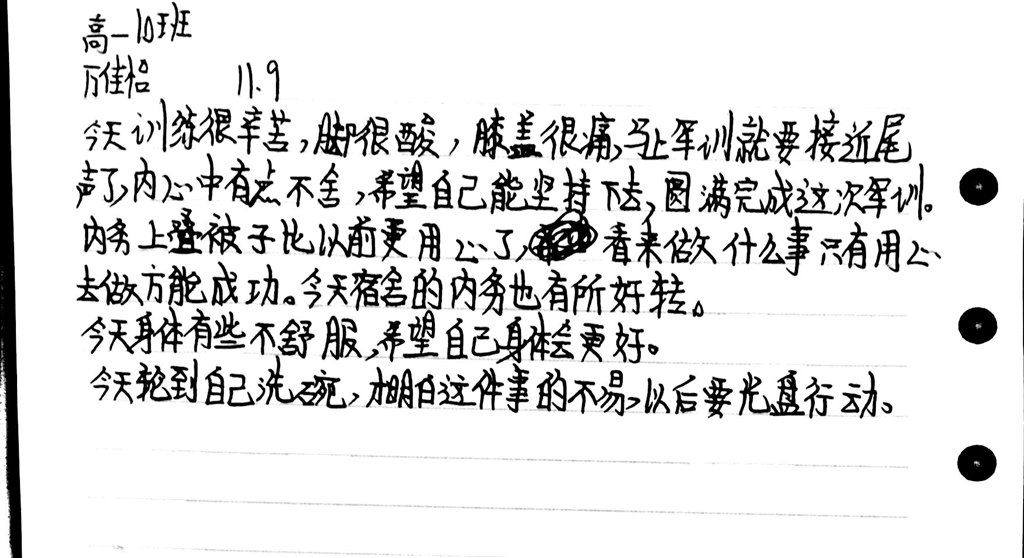 高一10班
万佳怡 11.9
今天训练很辛苦,脚很酸,膝盖很痛,马上军训就要接近尾
声了,内心中有点不舍,希望自己能坚持下去,圆满完成这次军训。
内务上叠被子比以前更用心了,看来做什么事只有用心
去做方能成功。今天宿舍的内务也有所好转。
今天身体有些不舒服,希望自己身体会更好。
今天轮到自己洗碗,才明白这件事的不易,以后要光盘行动。